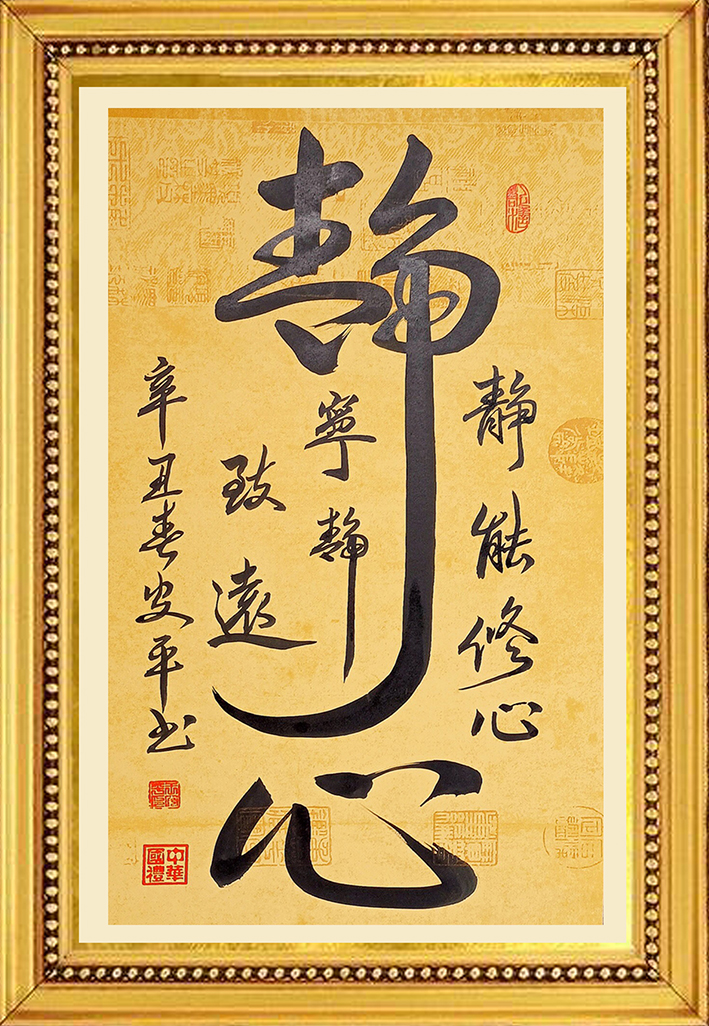 静心
静能修心
寧静
致遠
辛丑春安平书
中華國禮